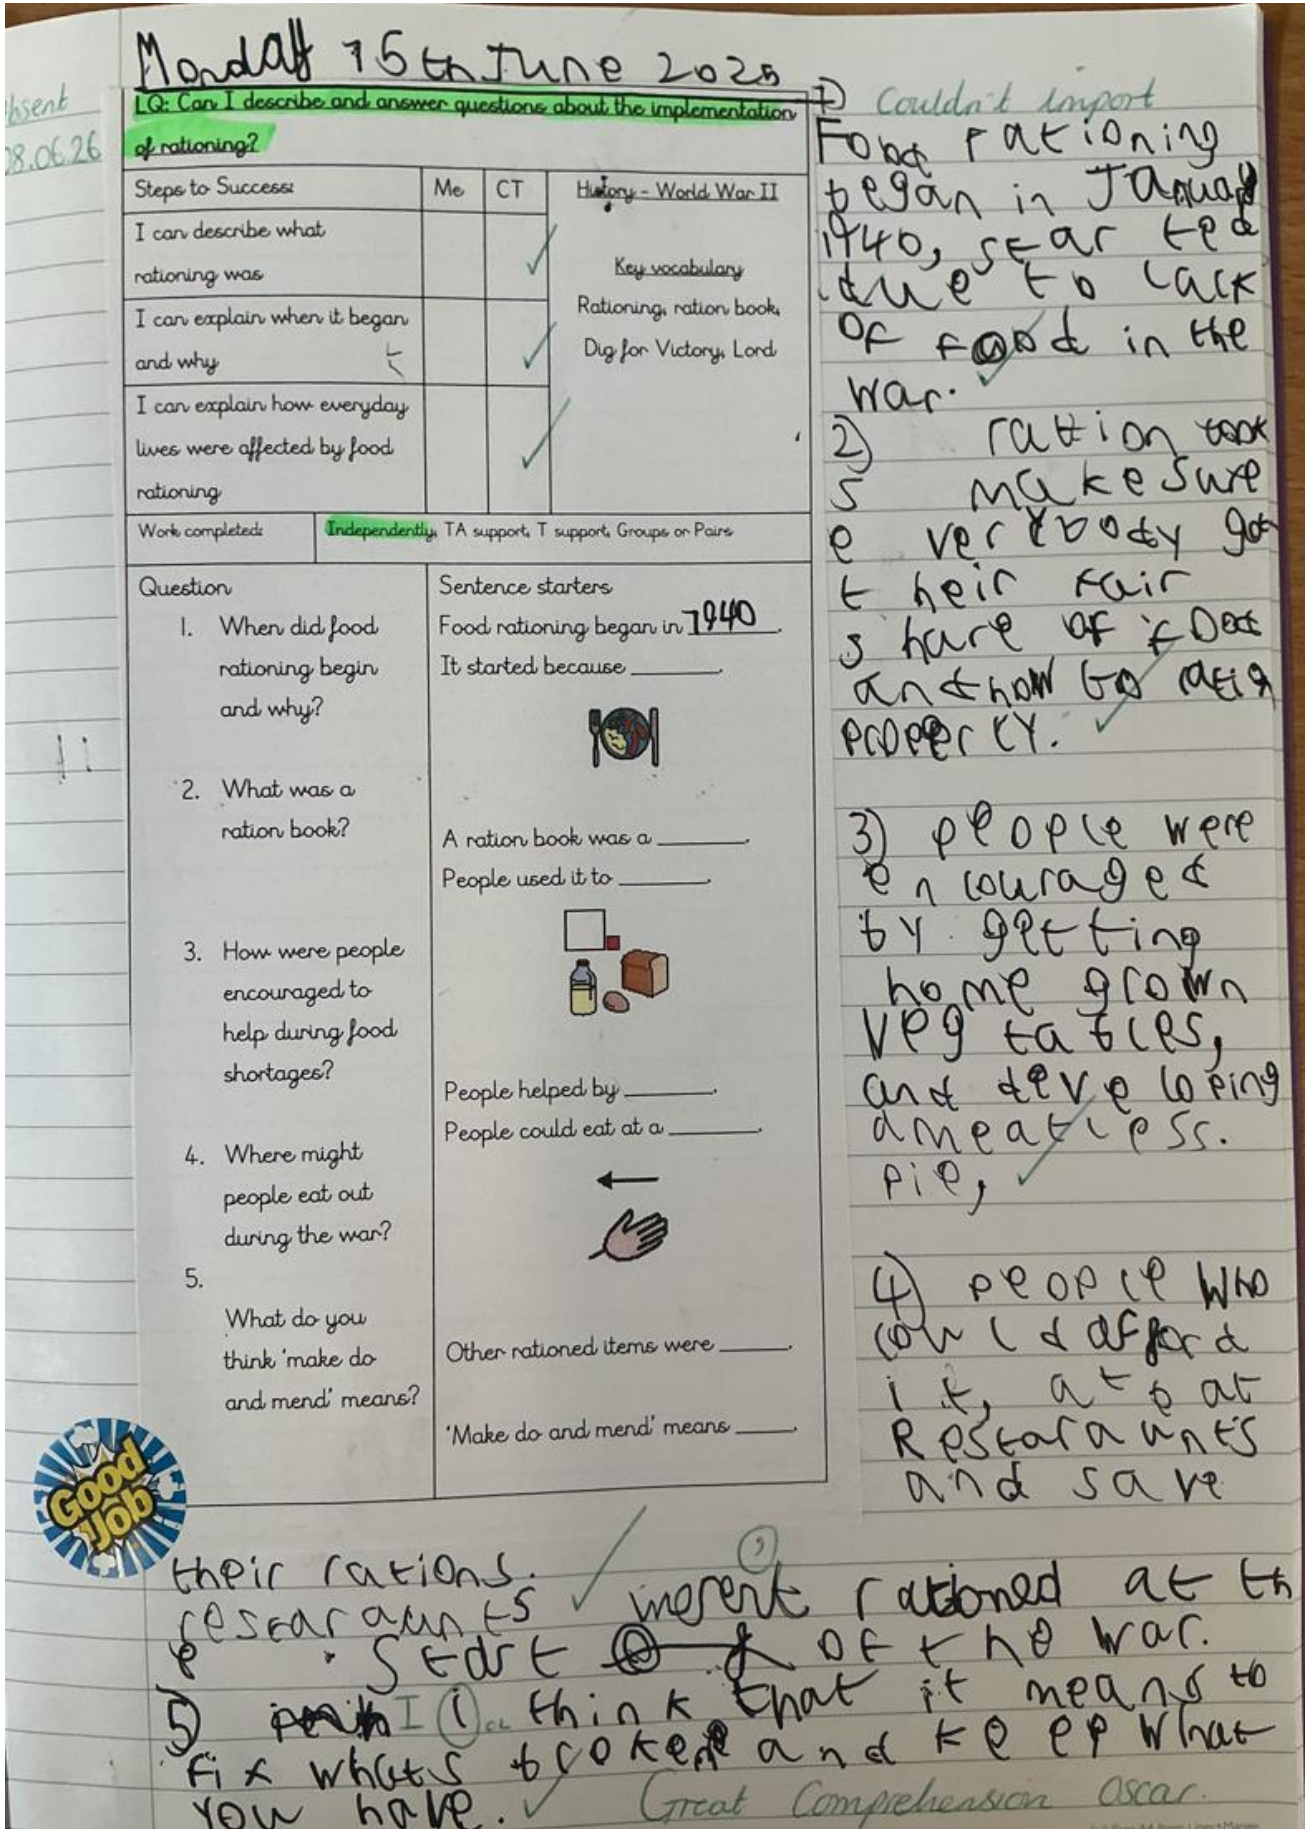 Monday 15th June 2025
absent
08.06.26
LQ: Can I describe and answer questions about the implementation
of rationing?
Steps to Success:
Me
CT
History - World War II
I can describe what
rationing was
Key vocabulary
Rationing, ration book,
Dig for Victory, Lord
I can explain when it began
and why
I can explain how everyday
lives were affected by food
rationing
Work completed:
Independently, TA support, T support, Groups or Pairs
Question
1. When did food
rationing begin
and why?
2. What was a
ration book?
3. How were people
encouraged to
help during food
shortages?
4. Where might
people eat out
during the war?
5.
What do you
think 'make do
and mend' means?
Sentence starters
Food rationing began in 1940.
It started because ______.
A ration book was a ______.
People used it to ______.
People helped by ______.
People could eat at a ______.
Other rationed items were ______.
'Make do and mend' means ______.
Good
Job
1) Couldn't import
Food rationing
began in January
1940, star ted
due to lack
of food in the
war.
2) ration book
s make sure
e verybody got
t heir fair
s hare of food
and how to ratio
properly.
3) people were
en couraged
by getting
home grown
veg tables,
and deve loping
a meat less.
pie,
4) people who
could afford
it, ate at
Restaraunts
and save
their rations.
restaraunts weren't rationed at th
e start of the war.
5) I i think that it means to
fix whats broken and keep what
you have.
Great Comprehension Oscar.